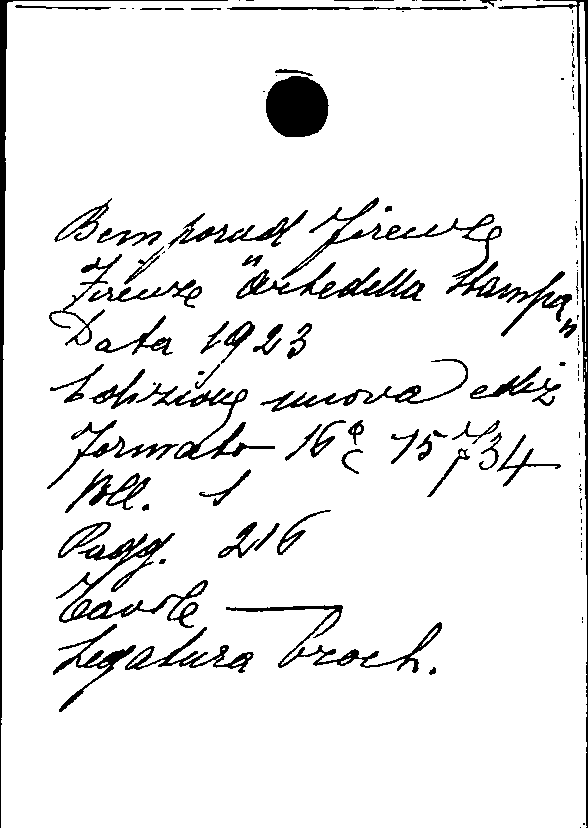 Bemporad Firenze
Firenze "Arte della Stampa"
Data 1923
Edizione nuova ediz
Formato 16º
Vll. 1
Pagg. 216
Tavole —
Legatura broch.